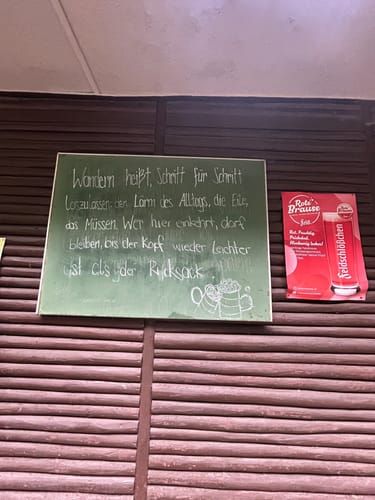 Wandern heißt, Schritt für Schritt
loszulassen: den Lärm des Alltags, die Eile,
das Müssen. Wer hier einkehrt, darf
bleiben, bis der Kopf wieder leichter
ist als der Rucksack.
Rote
Brause
Rot, Fruchtig,
Prickelnd.
Feldschlößchen